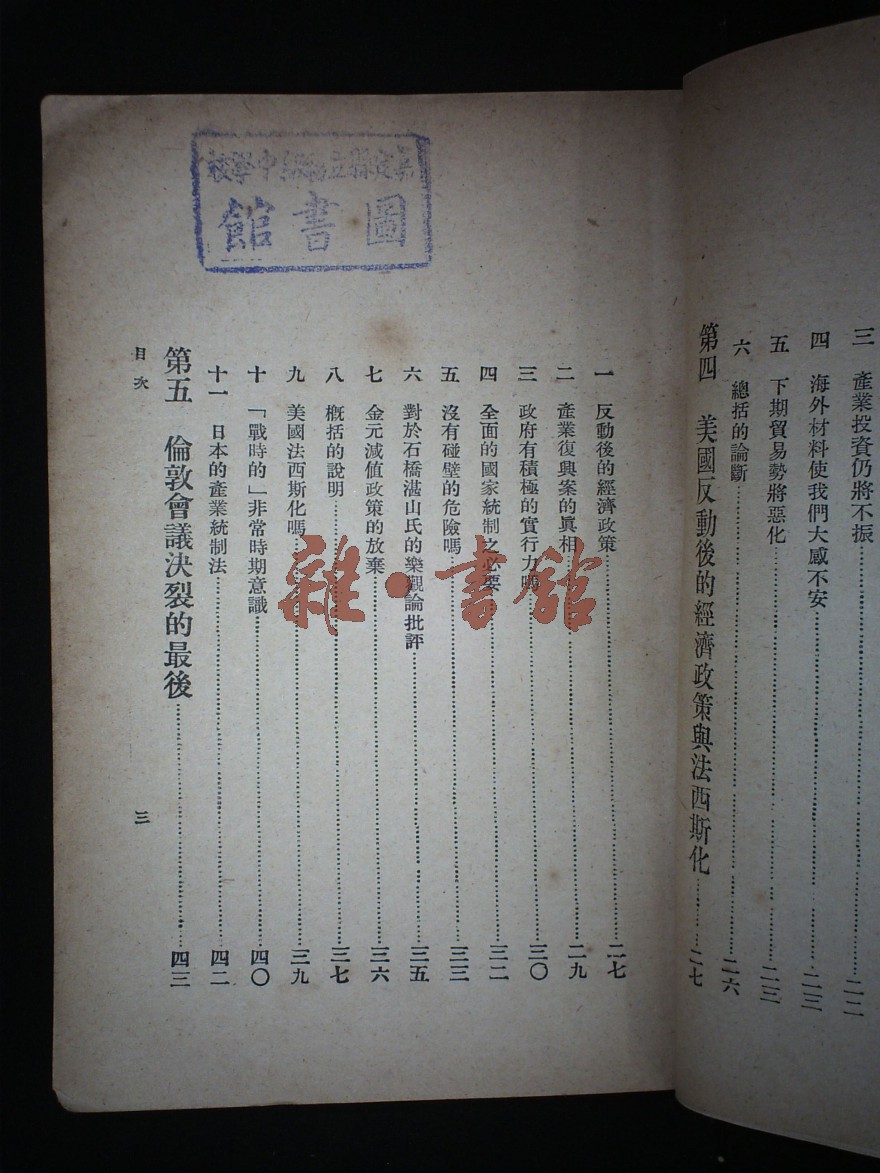 三　產業投資仍將不振……二二
四　海外材料使我們大感不安……二三
五　下期貿易勢將惡化……二三
六　總括的論斷……二六
第四　美國反動後的經濟政策與法西斯化……二七
一　反動後的經濟政策……二七
二　產業復興案的眞相……二九
三　政府有積極的實行力嗎……三〇
四　全面的國家統制之必要……三二
五　沒有碰壁的危險嗎……三三
六　對於石橋湛山氏的樂觀論批評……三五
七　金元減值政策的放棄……三六
八　概括的說明……三七
九　美國法西斯化嗎……三九
十　「戰時的」非常時期意識……四〇
十一　日本的產業統制法……四二
第五　倫敦會議決裂的最後……四三
目次
三
縣立初級中學校
圖書館
雜·書館